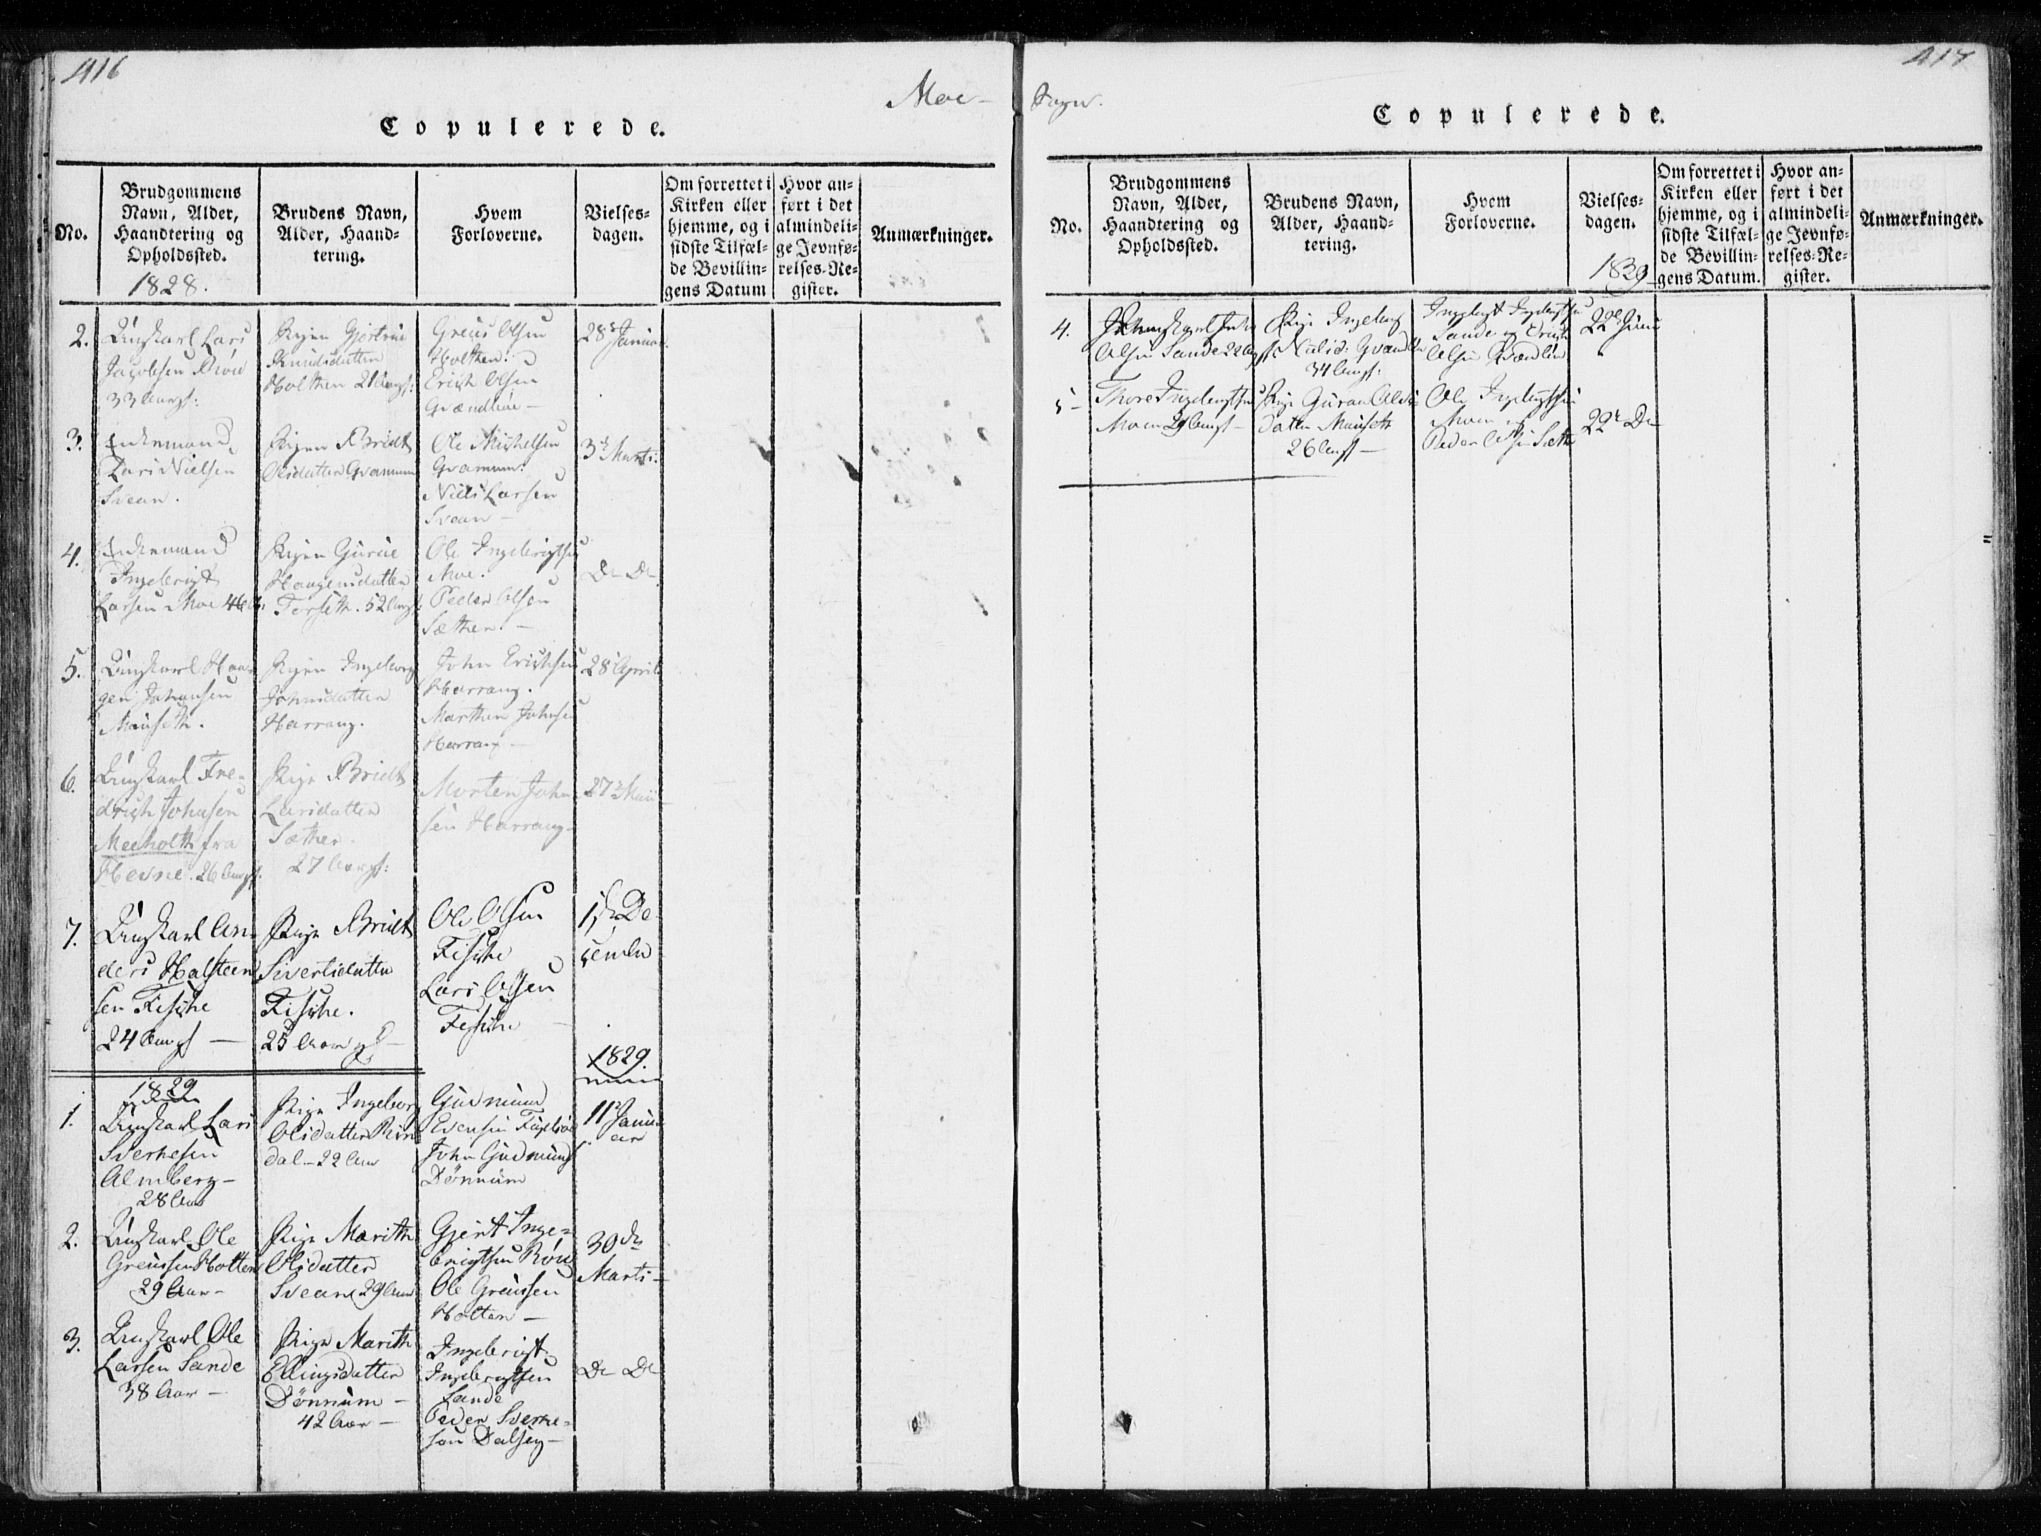 416
Moe
Copulerede.
No.
Brudgommens
Navn, Alder,
Haandtering og
Opholdssted.
1828.
Brudens Navn,
Alder, Haand-
tering.
Hvem
Forloverne.
Vielses-
dagen.
Om forrettet i
Kirken eller
hjemme, og i
sidste Tilfæl-
de Bevillin-
gens Datum
Hvor an-
ført i det
almindeli-
ge Jevnfø-
relses-Re-
gister.
Anmærkninger.
2.
Ungkarl Lars
Jacobsen
33 Aar gl:
Pigen Gjertrue
Knudsdatter
Holthen 21 Aar gl:
Greus Olsen
Holthen.
Erich Olsen
28 Januar
3.
Enkemand
Lars Nielsen
Svean.
Pigen Bridt
Olsdatter Gvammen
Ole Michelsen
Gvammen.
Niels Larsen
Svean
3 Marts.
4.
Enkemand
Ingebrigt
Larsen Moe 46
Pigen Gurue
Haagensdatter
52 Aar gl
Ole Ingebrigtsen
Moe.
Peder Olsen
Sæther.
De De
5.
Ungkarl Haa-
gen Johansen
Mauseth.
Pigen Ingeborg
Johnsdatter
Harrang.
John Erichsen
Harrang.
Marthen Johnsen
Harrang
28 April
6.
Ungkarl Fre-
drich Johnsen
Meeholth fra
Hevne. 26 Aar gl.
Pige Bridt
Larsdatter
Sæther.
27 Aar gl:
Morten John
sen Harrang
27 Maii
7.
Ungkarl An-
ders Halsteen
sen Fische
24 Aar gl
Pige Bridt
Sivertsdatter
Fische.
25 Aar gl
Ole Olsen
Fische
Lars Olsen
Fische
1ste De-
cember
1829.
1829
1.
Ungkarl Lars
Sverkesen
Almberg
28 Aar
Pige Ingeborg
Olsdatter Rin
dal 22 Aar
Gudmund
Evensen
John Gudmunds
Dønnum
11 Janu
ar
2.
Ungkarl Ole
Greussen Holten
29 Aar
Pige Marith
Olsdatter
Svean 29 Aar
Gjert Inge-
brigtsen
Ole Greussen
Holten
30 de
Marts
3.
Ungkarl Ole
Larsen Sande
38 Aar
Pige Marith
Ellingsdatter
Dønnum
42 Aar
Ingebrigt
Ingebrigtsen
Sande
Peder Sverke-
sen Dalseg
De De
417
Sogn.
Copulerede.
No.
Brudgommens
Navn, Alder,
Haandtering og
Opholdssted.
Brudens Navn,
Alder, Haand-
tering.
Hvem
Forloverne.
Vielses-
dagen.
1829
Om forrettet i
Kirken eller
hjemme, og i
sidste Tilfæl-
de Bevillin-
gens Datum.
Hvor an-
ført i det
almindeli-
ge Jevnfø-
relses-Re-
gister.
Anmærkninger.
4.
Ungkarl John
Olsen Sande 22 Aar gl
Pige Ingeborg
34 Aar gl:
Ingebrigt Ingebrigtsen
Sande og Erich
Olsen
22 Juni
5
Thore Ingebrigtsen
Moen 29 Aar gl
Pige Guran Ols
datter Mauseth
26 Aar gl
Ole Ingebrigtsen
Moen og
Peder Olsen Sæth
22 De